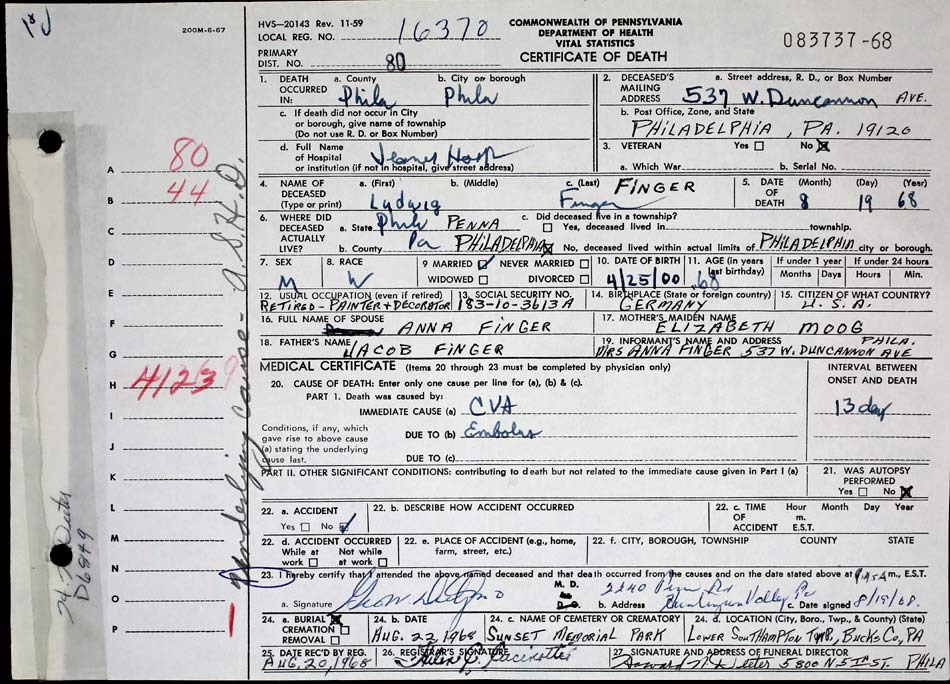 200M-6-67
HVS-20143 Rev. 11-59
LOCAL REG. NO. 16370
PRIMARY
DIST. NO. 80
COMMONWEALTH OF PENNSYLVANIA
DEPARTMENT OF HEALTH
VITAL STATISTICS
CERTIFICATE OF DEATH
083737-68
1. DEATH OCCURRED IN: a. County Phila b. City or borough Phila
c. If death did not occur in City or borough, give name of township (Do not use R. D. or Box Number)
d. Full Name of Hospital or institution (if not in hospital, give street address) Jeanes Hosp
2. DECEASED'S MAILING ADDRESS a. Street address, R. D., or Box Number
537 W. Duncannon AVE.
b. Post Office, Zone, and State
PHILADELPHIA, PA. 19120
3. VETERAN Yes No
a. Which War b. Serial No.
4. NAME OF DECEASED (Type or print) a. (First) Ludwig b. (Middle) c. (Last) FINGER Finger
5. DATE OF DEATH (Month) 8 (Day) 19 (Year) 68
6. WHERE DID DECEASED ACTUALLY LIVE? a. State Phila PENNA
b. County Pa PHILADELPHIA
c. Did deceased live in a township?
Yes, deceased lived in township.
No, deceased lived within actual limits of PHILADELPHIA city or borough.
7. SEX M
8. RACE W
9 MARRIED NEVER MARRIED
WIDOWED DIVORCED
10. DATE OF BIRTH 4/25/00
11. AGE (in years last birthday) 68
If under 1 year Months Days
If under 24 hours Hours Min.
12. USUAL OCCUPATION (even if retired) RETIRED - PAINTER & DECORATOR
13. SOCIAL SECURITY NO. 183-10-3613A
14. BIRTHPLACE (State or foreign country) GERMANY
15. CITIZEN OF WHAT COUNTRY? U.S.A
16. FULL NAME OF SPOUSE ANNA FINGER
17. MOTHER'S MAIDEN NAME ELIZABETH MOOG
18. FATHER'S NAME JACOB FINGER
19. INFORMANT'S NAME AND ADDRESS PHILA.
MRS ANNA FINGER 537 W. DUNCANNON AVE
MEDICAL CERTIFICATE (Items 20 through 23 must be completed by physician only)
INTERVAL BETWEEN ONSET AND DEATH
20. CAUSE OF DEATH: Enter only one cause per line for (a), (b) & (c).
PART 1. Death was caused by:
IMMEDIATE CAUSE (a) CVA 13 day
Conditions, if any, which gave rise to above cause (a) stating the underlying cause last.
DUE TO (b) Embolus
DUE TO (c)
PART II. OTHER SIGNIFICANT CONDITIONS: contributing to death but not related to the immediate cause given in Part I (a)
21. WAS AUTOPSY PERFORMED
Yes No
22. a. ACCIDENT
Yes No
22. b. DESCRIBE HOW ACCIDENT OCCURRED
22. c. TIME OF ACCIDENT Hour m. E.S.T. Month Day Year
22. d. ACCIDENT OCCURRED
While at work Not while at work
22. e. PLACE OF ACCIDENT (e.g., home, farm, street, etc.)
22. f. CITY, BOROUGH, TOWNSHIP COUNTY STATE
23. I hereby certify that I attended the above named deceased and that death occurred from the causes and on the date stated above at m., E.S.T.
a. Signature
M. D.
D.O.
b. Address 2240 Huntingdon Valley Pa
c. Date signed 8/19/68
24. a. BURIAL
CREMATION
REMOVAL
24. b. DATE AUG. 22, 1968
24. c. NAME OF CEMETERY OR CREMATORY SUNSET MEMORIAL PARK
24. d. LOCATION (City, Boro., Twp., & County) (State)
LOWER SOUTHAMPTON TWP., BUCKS CO., PA
25. DATE REC'D BY REG. AUG. 20, 1968
26. REGISTRAR'S SIGNATURE
27. SIGNATURE AND ADDRESS OF FUNERAL DIRECTOR
5800 N. 5TH ST. PHILA
A 80
B 44
C
D
E
F
G
H 41239
I
J
K
L
M
N
O
P
Underlying cause - A.S.H.D.
D6849